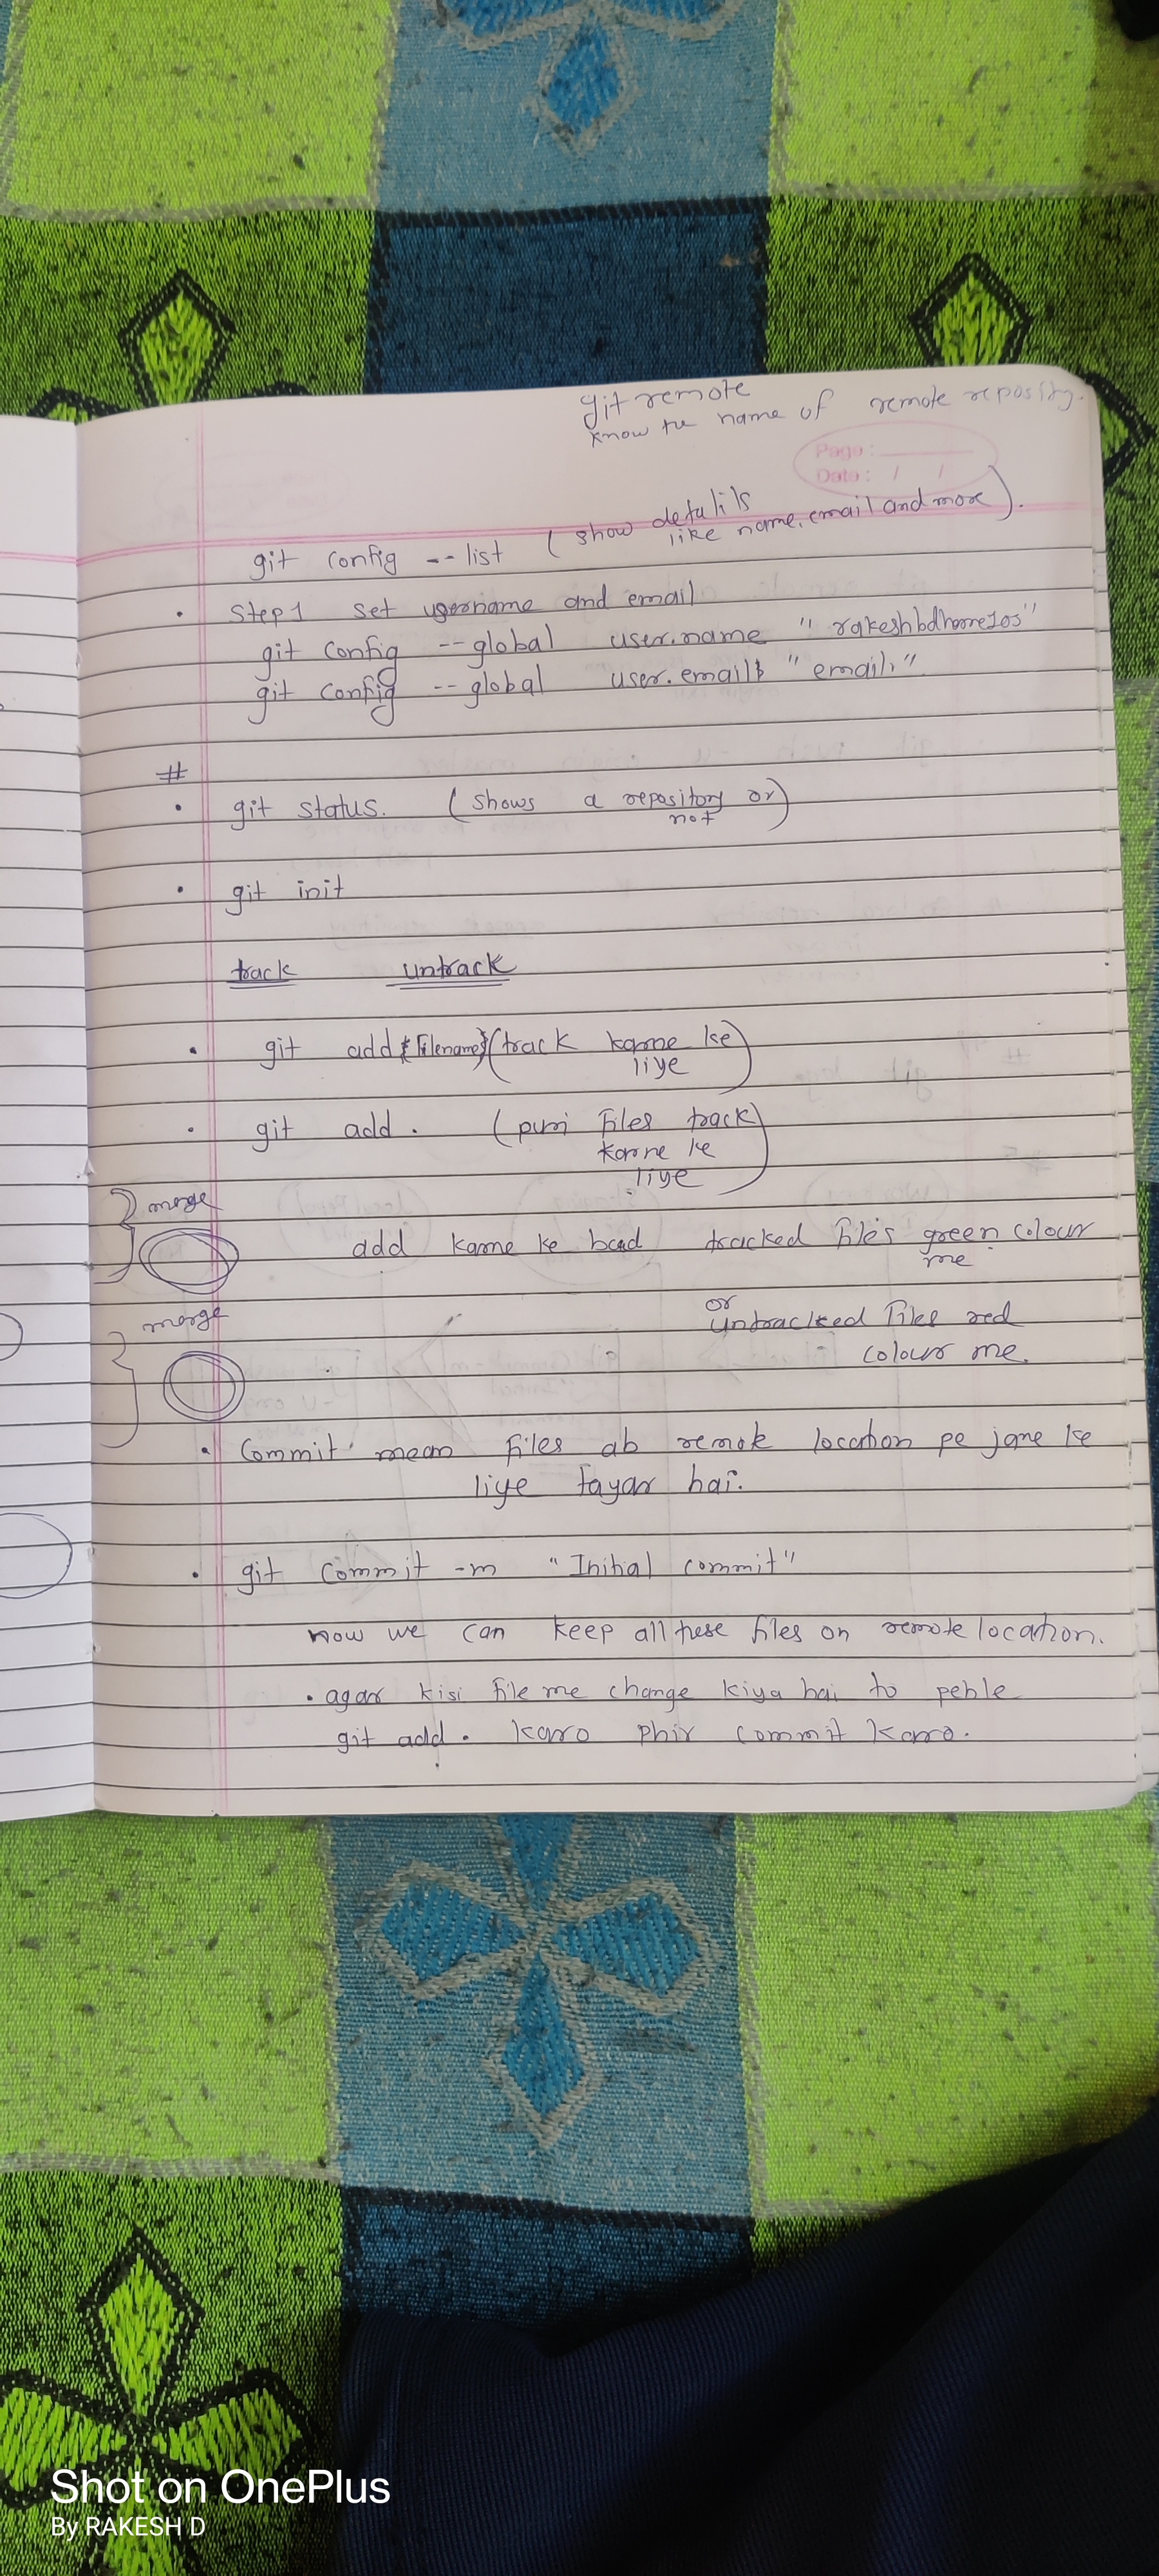 git remote
know the name of remote reposity.
Page :
Date : / /
git config --list ( show details
like name, email and more ).
• Step 1 set username and email
git config --global user.name "
git config --global user.email "email."
#
• git status. ( shows a repository or
not )
• git init
track untrack
• git add { filename } ( track karne ke
liye )
• git add . ( puri files track
karne ke
liye )
merge
add karne ke baad tracked files green colour
me
merge
or
untracked files red
colour me.
• Commit mean files ab remote location pe jane ke
liye tayar hai.
• git commit -m "Initial commit"
now we can keep all these files on remote location.
• agar kisi file me change kiya hai to pehle
git add . karo phir commit karo.
Shot on OnePlus
By RAKESH D